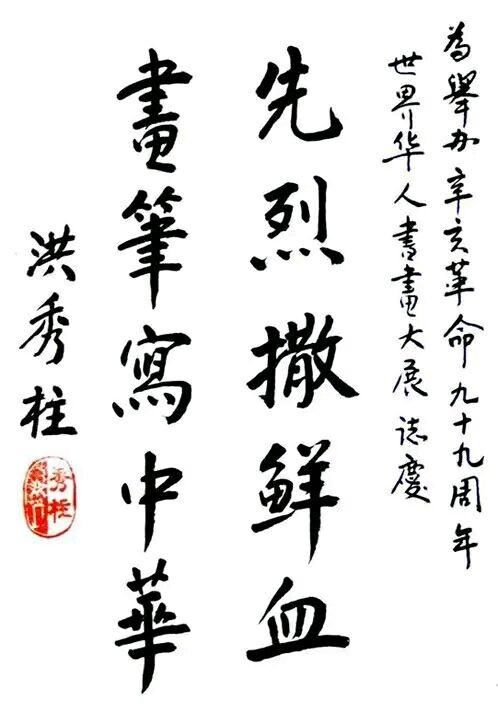 為舉办辛亥革命九十九周年
世界华人書畫大展誌慶
先烈撒鲜血
畫筆寫中華
洪秀柱
秀柱